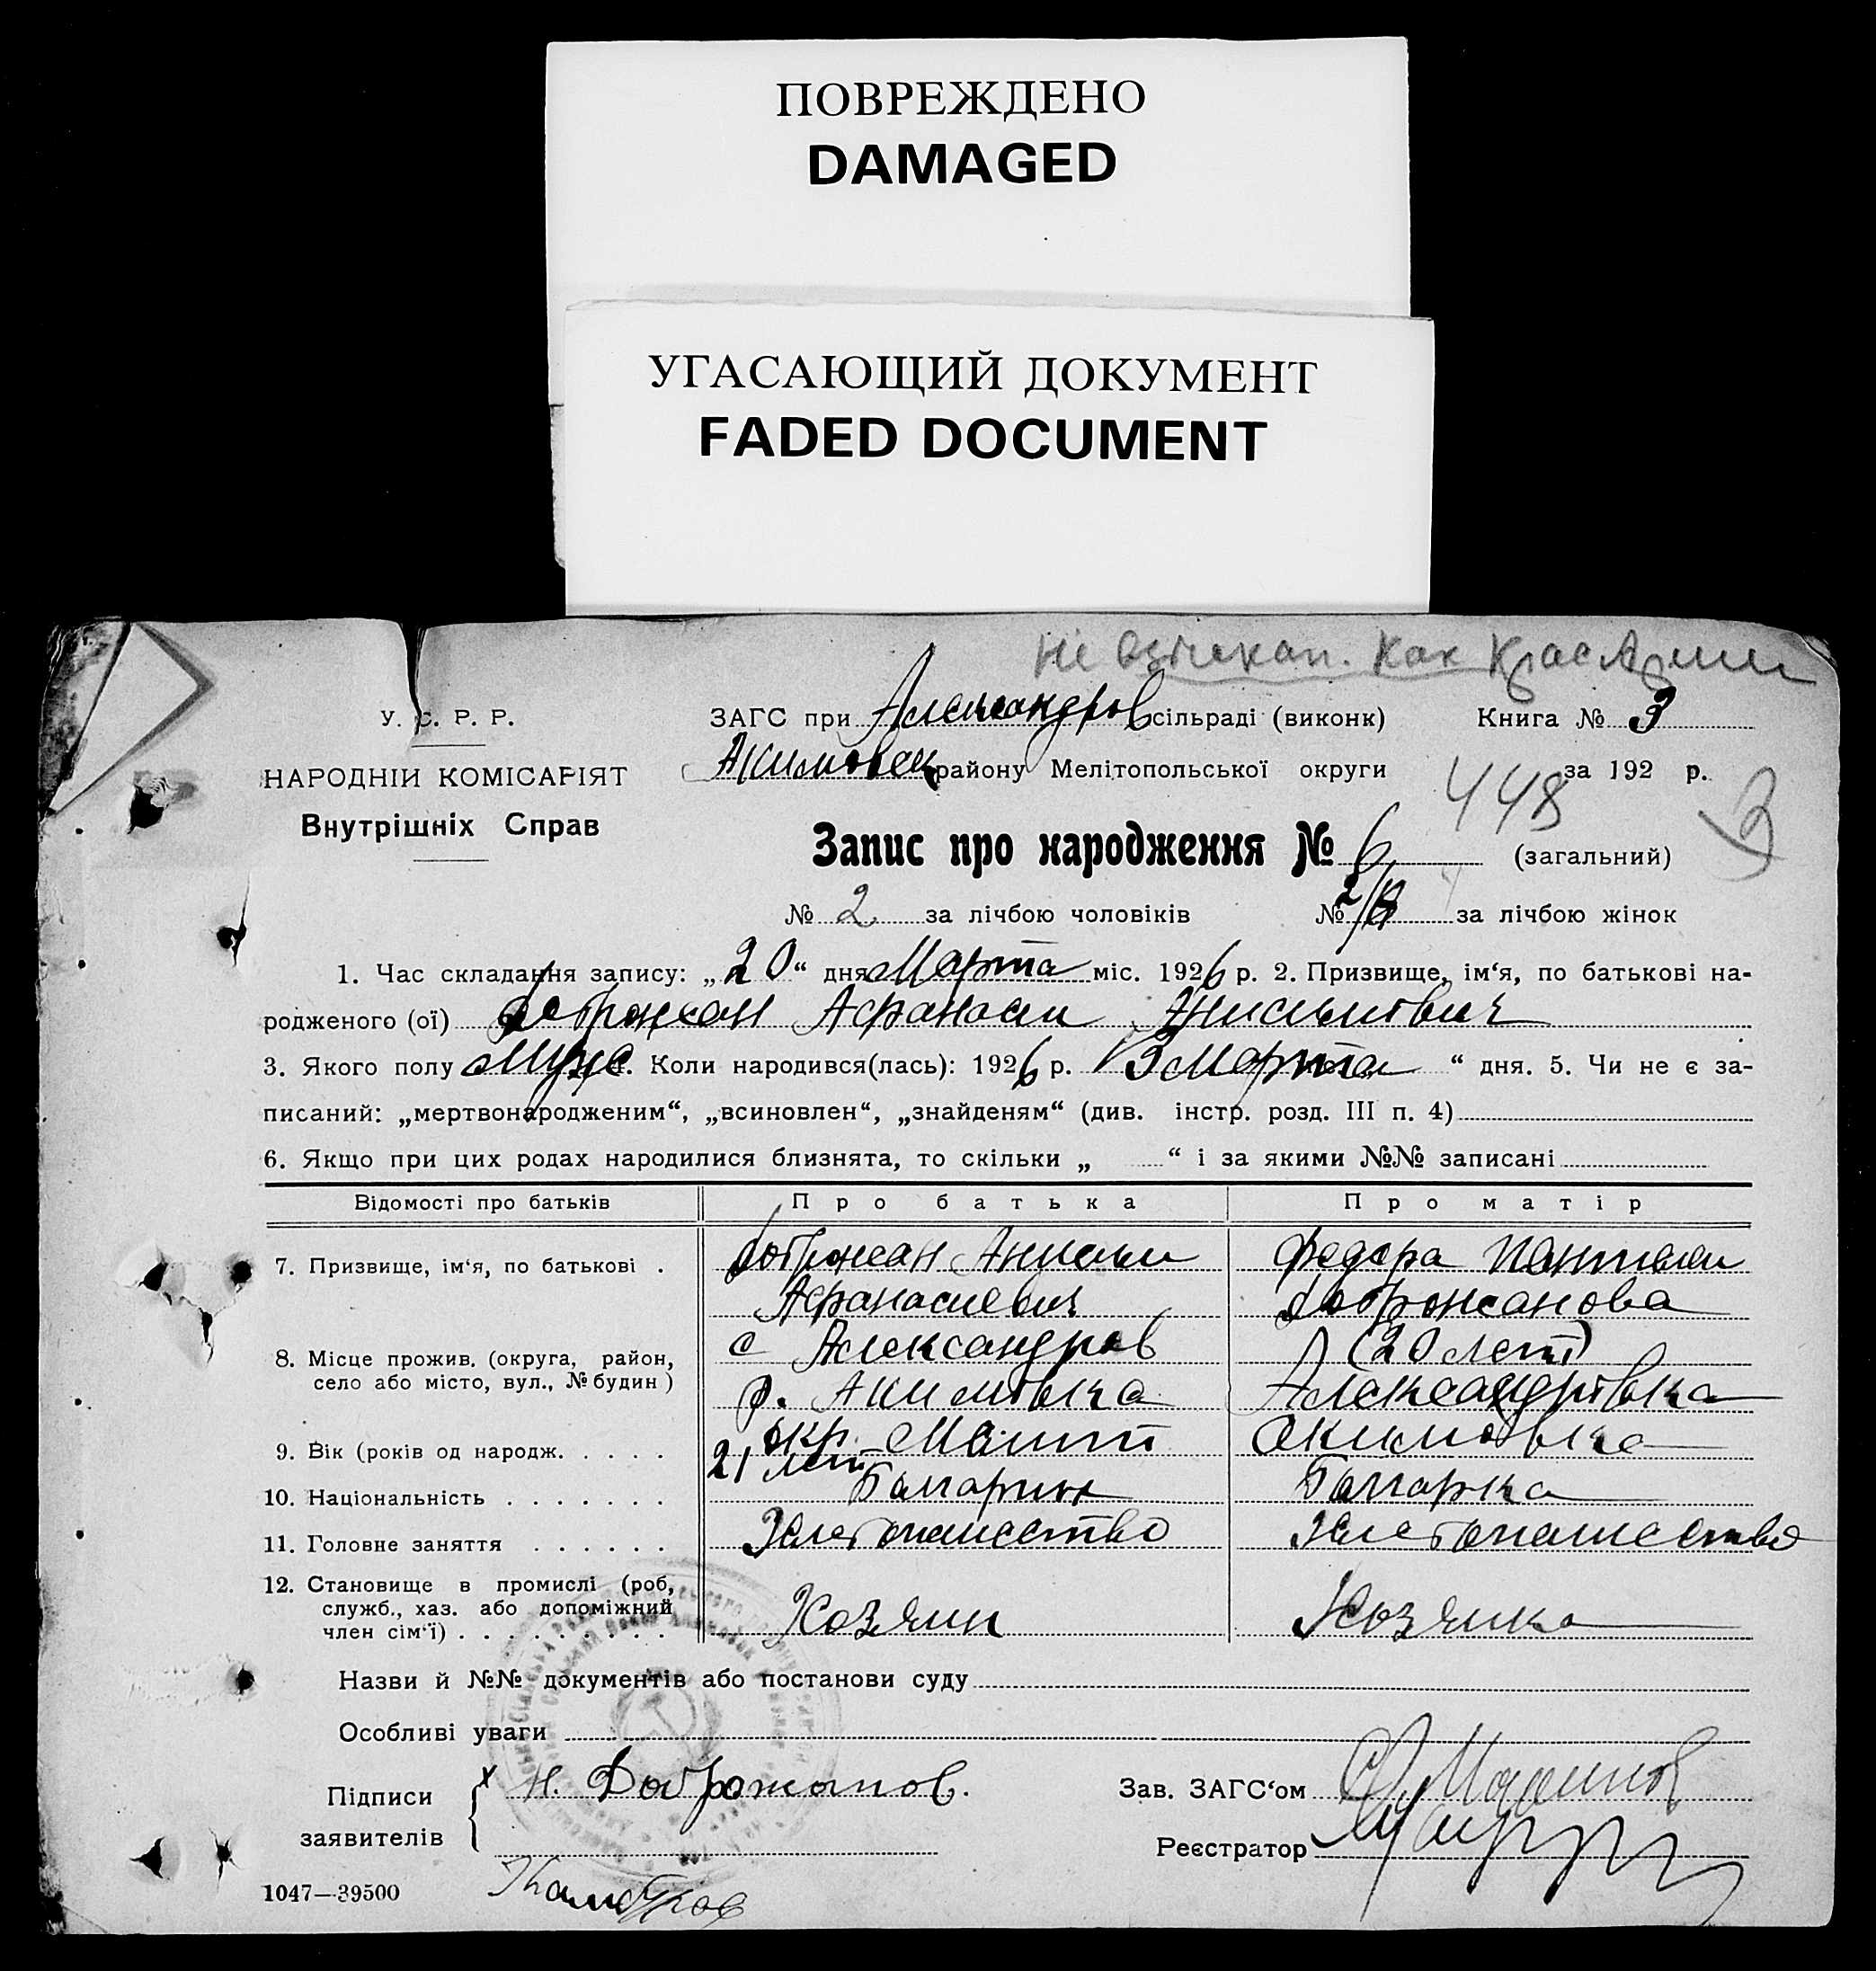 ПОВРЕЖДЕНО
DAMAGED
УГАСАЮЩИЙ ДОКУМЕНТ
FADED DOCUMENT
не Как
У. С. Р. Р.
НАРОДНІЙ КОМІСАРІЯТ
Внутрішніх Справ
ЗАГС при Александров сільраді (виконк) Книга № 3
Акимовск району Мелітопольської округи за 192 р.
448
3
Запис про народження № 6 (загальний)
№ 2 за лічбою чоловіків № за лічбою жінок
1. Час складання запису: „20“ дня Марта міс. 1926 р. 2. Призвище, ім‘я, по батькові на-
родженого (ої) Добржан Афанасий
3. Якого полу Муж 4. Коли народився(лась): 1926 р. 13 Марта “ дня. 5. Чи не є за-
писаний: „мертвонародженим“, „всиновлен“, „знайденям“ (див. інстр. розд. III п. 4)
6. Якщо при цих родах народилися близнята, то скільки „ “ і за якими №№ записані
Відомості про батьків Про батька Про матір
7. Призвище, ім‘я, по батькові . Добржан Федора
Афанасиевич Добржанова
8. Місце прожив. (округа, район, с Александров (20 лет)
село або місто, вул., № будин) р. Акимовка Александровка
9. Вік (років од народж. . . . . 21 лет окр. Мелит Акимовка
10. Національність . . . . . . . Болгарин Болгарка
11. Головне заняття . . . . . . Хлебопашество Хлебопашество
12. Становище в промислі (роб,
служб., хаз. або допоміжний Хозяин Хозяйка
член сім‘ї) . . . . . . . . .
Назви й №№ документів або постанови суду
Особливі уваги
Підписи Н. Добржанов. Зав. ЗАГС‘ом
заявителів Реєстратор
1047—39500